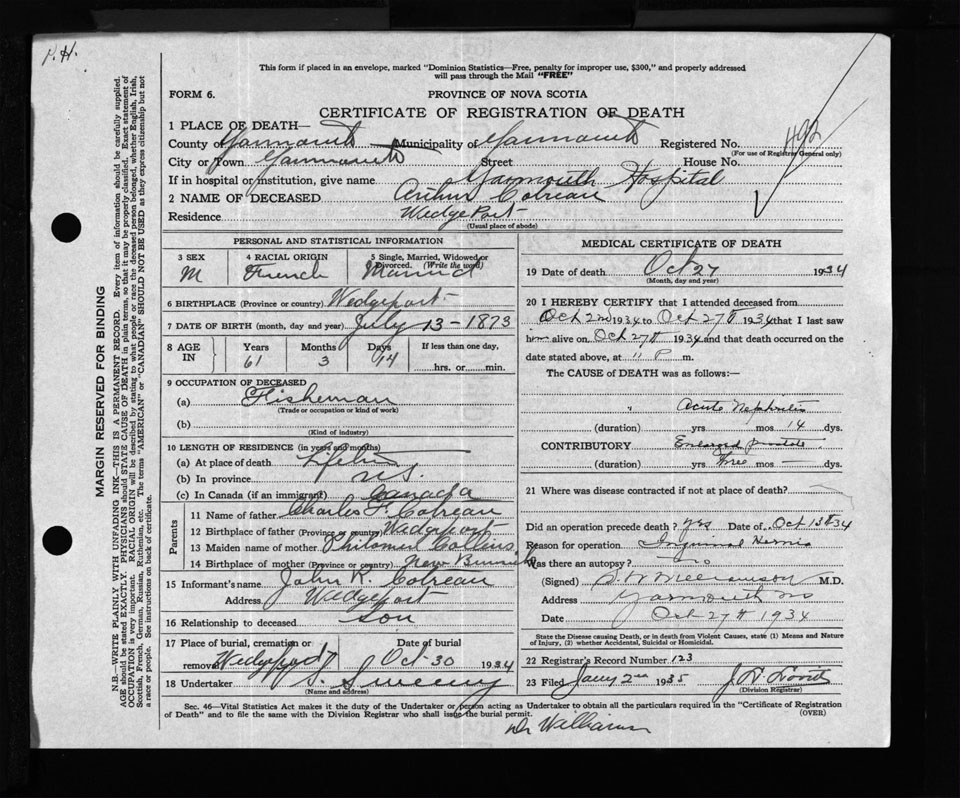 P.H.
This form if placed in an envelope, marked "Dominion Statistics—Free, penalty for improper use, $300," and properly addressed
will pass through the Mail "FREE"
FORM 6.
PROVINCE OF NOVA SCOTIA
CERTIFICATE OF REGISTRATION OF DEATH
492
1 PLACE OF DEATH—
County of Yarmouth Municipality of Yarmouth Registered No.
(For use of Registrar General only)
City or Town Yarmouth Street House No.
If in hospital or institution, give name Yarmouth Hospital
2 NAME OF DECEASED Arthur Cotreau
Residence Wedge Port
(Usual place of abode)
PERSONAL AND STATISTICAL INFORMATION
3 SEX M
4 RACIAL ORIGIN French
5 Single, Married, Widowed or Divorced. (Write the word) Married
6 BIRTHPLACE (Province or country) Wedgeport
7 DATE OF BIRTH (month, day and year) July 13-1873
8 AGE IN Years 61 Months 3 Days 14 If less than one day, hrs. or min.
9 OCCUPATION OF DECEASED
(a) Fisherman
(Trade or occupation or kind of work)
(b)
(Kind of industry)
10 LENGTH OF RESIDENCE (in years and months)
(a) At place of death
(b) In province N.S.
(c) In Canada (if an immigrant) Canada
Parents
11 Name of father Charles F. Cotreau
12 Birthplace of father (Province or country) Wedgeport
13 Maiden name of mother Collins
14 Birthplace of mother (Province or country) New
15 Informant's name John R. Cotreau
Address Wedgeport
16 Relationship to deceased son
17 Place of burial, cremation or removal Wedgeport Date of burial Oct-30 1934
18 Undertaker S. Sweeny
(Name and address)
MEDICAL CERTIFICATE OF DEATH
19 Date of death Oct 27 1934
(Month, day and year)
20 I HEREBY CERTIFY that I attended deceased from
Oct 2nd 1934 to Oct 27th 1934 that I last saw
him alive on Oct 27th 1934 and that death occurred on the
date stated above, at 11 P m.
The CAUSE of DEATH was as follows:—
Acute Nephritis
(duration) yrs mos 14 dys.
CONTRIBUTORY Enlarged prostate
(duration) yrs Three mos — dys.
21 Where was disease contracted if not at place of death?
Did an operation precede death? Yes Date of Oct 13th 34
Reason for operation Inguinal Hernia
Was there an autopsy? no
(Signed) M.D.
Address Yarmouth NS
Date Oct 27th 1934
State the Disease causing Death, or in death from Violent Causes, state (1) Means and Nature
of Injury, (2) whether Accidental, Suicidal or Homicidal.
22 Registrar's Record Number 123
23 Filed Jany 2nd 1935
(Division Registrar)
Sec. 46—Vital Statistics Act makes it the duty of the Undertaker or person acting as Undertaker to obtain all the particulars required in the "Certificate of Registration
of Death" and to file the same with the Division Registrar who shall issue the burial permit. (OVER)
Dr Williamson
MARGIN RESERVED FOR BINDING
N.B.—WRITE PLAINLY WITH UNFADING INK—THIS IS A PERMANENT RECORD. Every item of information should be carefully supplied.
AGE should be stated EXACTLY. PHYSICIANS should STATE CAUSE OF DEATH in plain terms, so that it may be properly classified. Exact statement of
OCCUPATION is very important. RACIAL ORIGIN will be described by stating to what people or race the deceased person belonged, whether English, Irish,
Scottish, French, German, Russian, Ruthenian, etc. The terms "AMERICAN" or "CANADIAN" SHOULD NOT BE USED as they express citizenship but not
a race or people. See instructions on back of certificate.